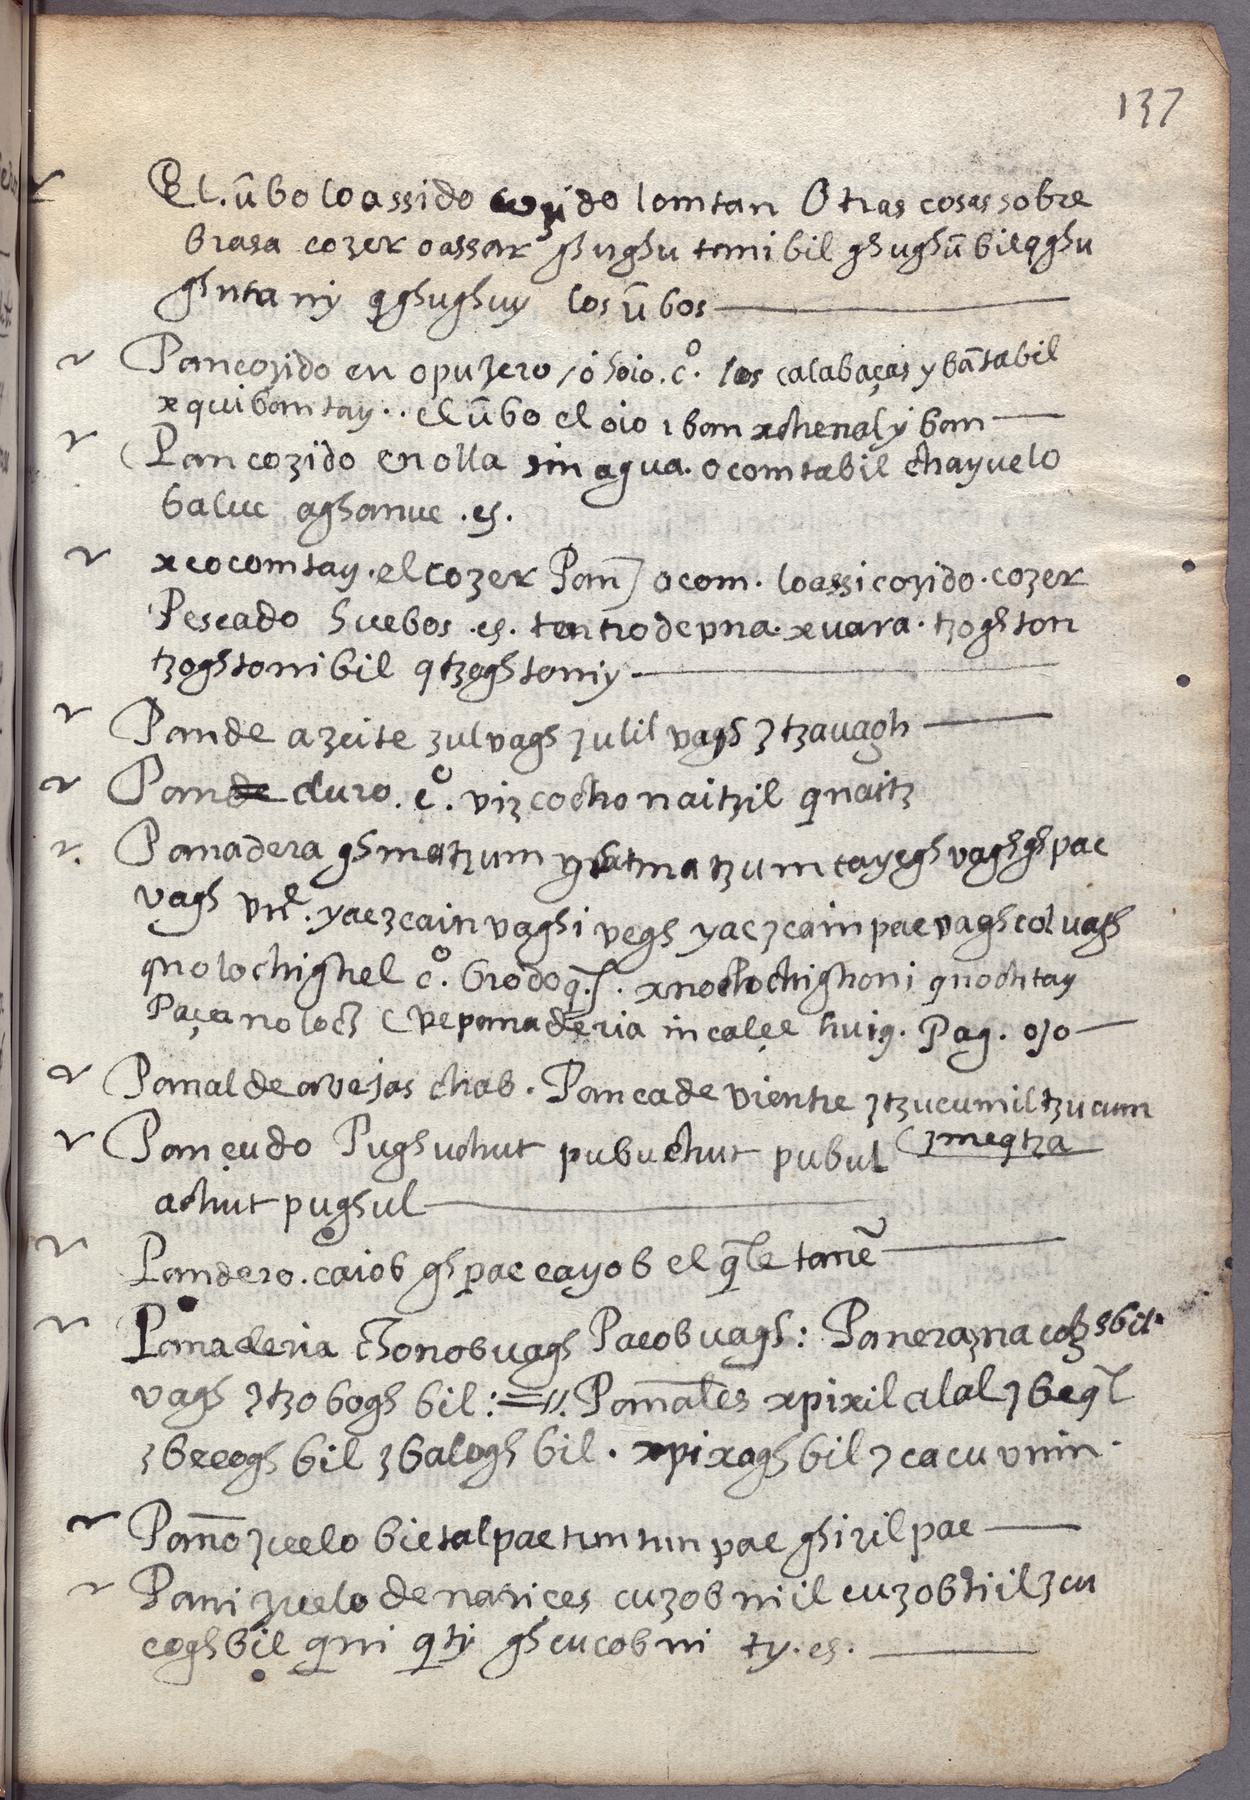 137
El. ūbo lo assido cozido lomtan Otras cosas sobre
brasa cozer o assar ghughu tanibil ghughūbil qghu
ghntaniy qghughuy los ūbos
Pan cozido en o puzero / o hoio. c̊. los calabaças y bātabil
xquibantay .. el ūbo el oio ibam xchenal y bam
Pan cozido en olla sin agua. ocomtabil chayuelo
baluc aghanuc .es.
xcocomtay. el cozer Pan] ocom. lo assi cozido. cozer
Pescado huebos .es. tentro de pna. xuara. tzoghton
tzoghtonibil qtzoghtoniy
Pan de azeite zulvagh zulil vagh ztzauagh
Pan de duro. c̊. vizcocho naitzil qnaitz
Panadera ghmatzum matzum cayegh vagh ghpac
vagh vnẽ. yaczcain vagh i vegh yaczcain pac vagh col uagh
qnolochighel c̊. brodo q.s. xnochochighoni qnochtay
Paça noloch (ve panaderia in calle huig. Pag. 010
Panal de avejas chab. Panca de vientre ztzucumil tzucum
Pançudo Pughuchut pubuchut pubul (zmeqtza
achut pughul
Pandero. caiob ghpac cayob el q̄le tanē
Panaderia chonobuagh Pacobuagh: Panera zna
vagh ztzobogh bil := //. Panales xpixil alal zbeql
zbecogh bil zbalogh bil. xpixogh bil zcacu vnin.
Pañozuelo bietal pac tuntun pac ghizil pac
Panizuelo de narices cuzobniil cuzobtiil zcu
coghbil qni qti ghcucobni ty .es.